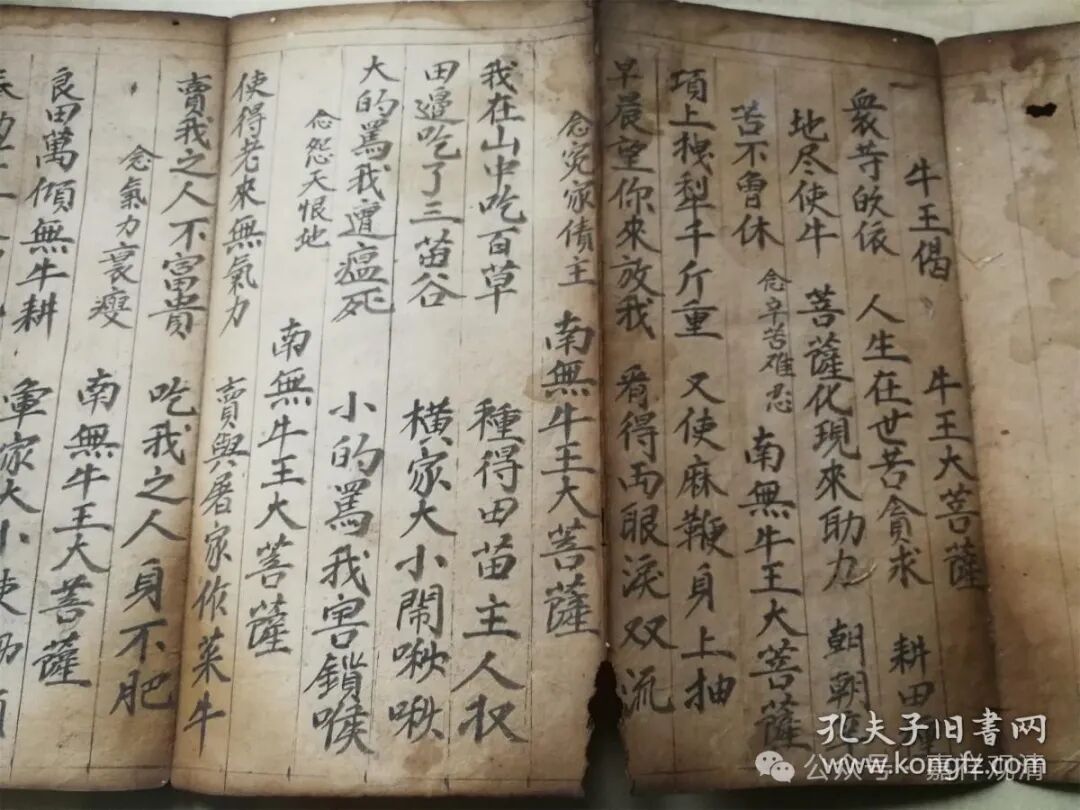 牛王偈 牛王大菩薩
衆等皈依 人生在世苦貪求 耕田
地尽使牛 菩薩化現來助力 朝朝
苦不曾休 念辛苦难忍 南無牛王大菩薩
項上拽犁千斤重 又使麻鞭身上抽
早晨望你來放我 看得両眼淚双流
念冤家債主 南無牛王大菩薩
我在山中吃百草 種得田苗主人收
田邊吃了三苗谷 橫家大小鬧啾啾
大的罵我遭瘟死 小的罵我害鎖喉
念怨天恨地 南無牛王大菩薩
使得老來無氣力 賣與屠家作菜牛
賣我之人不富貴 吃我之人身不肥
念氣力衰瘦 南無牛王大菩薩
良田萬傾無牛耕 家大小使
孔夫子旧书网
www.kongfz.com
公众号 嘉祥观清